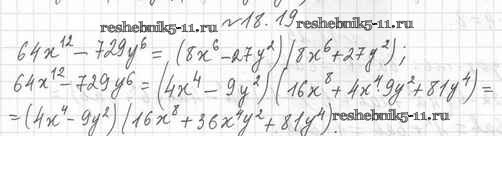 reshebnik5-11.ru
№18.19
64x¹² - 729y⁶ = (8x⁶ - 27y²)(8x⁶ + 27y²);
64x¹² - 729y⁶ = (4x⁴ - 9y²)(16x⁸ + 4x⁴·9y² + 81y⁴) =
= (4x⁴ - 9y²)(16x⁸ + 36x⁴y² + 81y⁴).
reshebnik5-11.ru